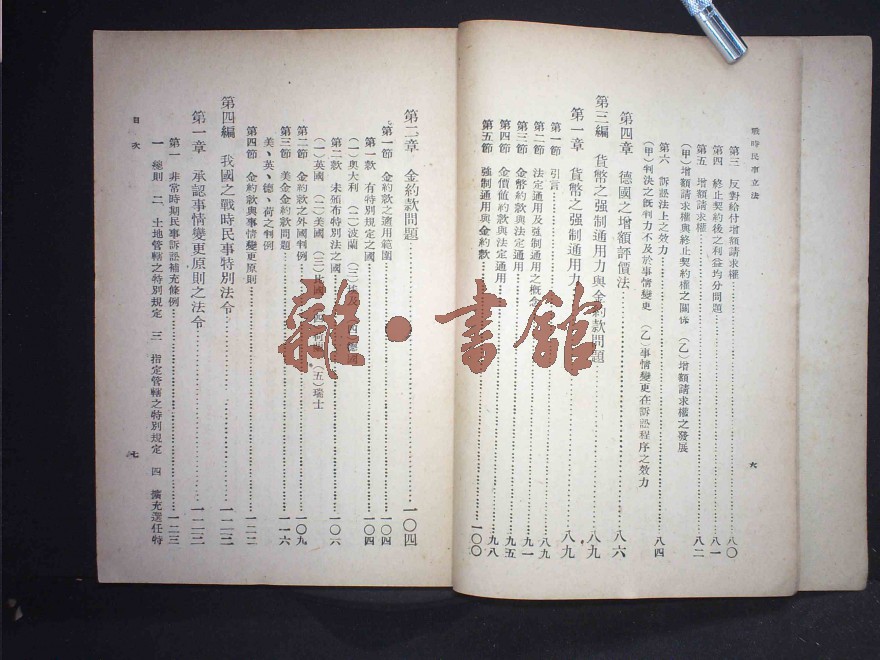 戰時民事立法
第三 反對給付增額請求權……八〇
第四 終止契約後之利益均分問題……八一
第五 增額請求權……八二
(甲)增額請求權與終止契約權之關係 (乙)增額請求權之發展
第六 訴訟法上之效力……八四
(甲)判決之既判力不及於事情變更 (乙)事情變更在訴訟程序之效力
第四章 德國之增額評價法……八六
第三編 貨幣之強制通用力與金約款問題……八九
第一章 貨幣之强制通用力……八九
第一節 引言……八九
第二節 法定通用及强制通用之概念……八九
第三節 金幣約款與法定通用……九一
第四節 金價值約款與法定通用……九五
第五節 强制通用與金約款……九八
一〇〇
六
第二章 金約款問題……一〇四
第一節 金約款之適用範圍……一〇四
第一款 有特別規定之國……一〇四
(一)奧大利 (二)波蘭 (三)埃及
第二款 未頒布特別法之國……一〇六
(一)英國 (二)美國 (三)比國 (五)瑞士
第二節 金約款之外國判例……一〇九
第三節 美金金約款問題……一一六
美、英、德、荷之判例
第四節 金約款與事情變更原則……一二二
第四編 我國之戰時民事特別法令……一二三
第一章 承認事情變更原則之法令……一二三
第一 非常時期民事訴訟補充條例……一二三
一 總則 二 土地管轄之特別規定 三 指定管轄之特別規定 四 擴充選任特
目次
七
雜·書館